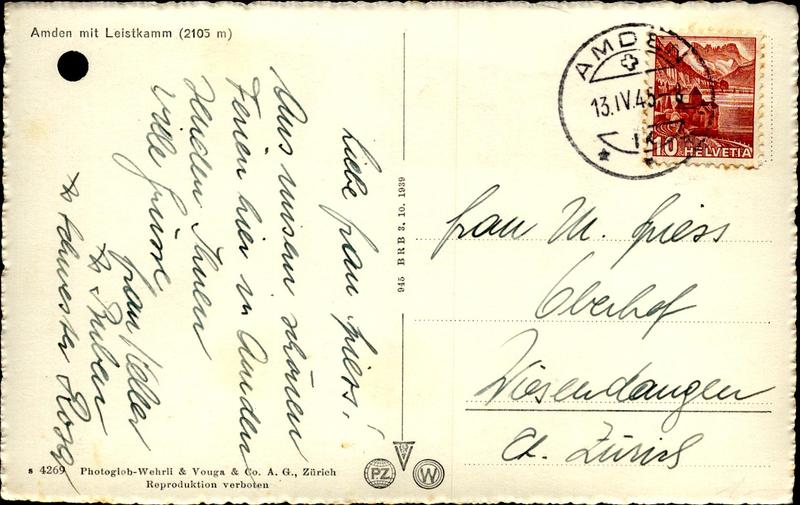 Amden mit Leistkamm (2103 m)
Liebe Frau Griess!
Aus unseren schönen
Ferien hier in Amden
senden Ihnen
viele Grüsse
Frau Keller
& Buben
& Schwester Rosa
945 BRB 3. 10. 1939
AMDEN
13.IV.45
10 HELVETIA
Frau M. Griess
Oberhof
Wiesendangen
Ct. Zürich
s 4269 Photoglob-Wehrli & Vouga & Co. A. G., Zürich
Reproduktion verboten
PZ
W